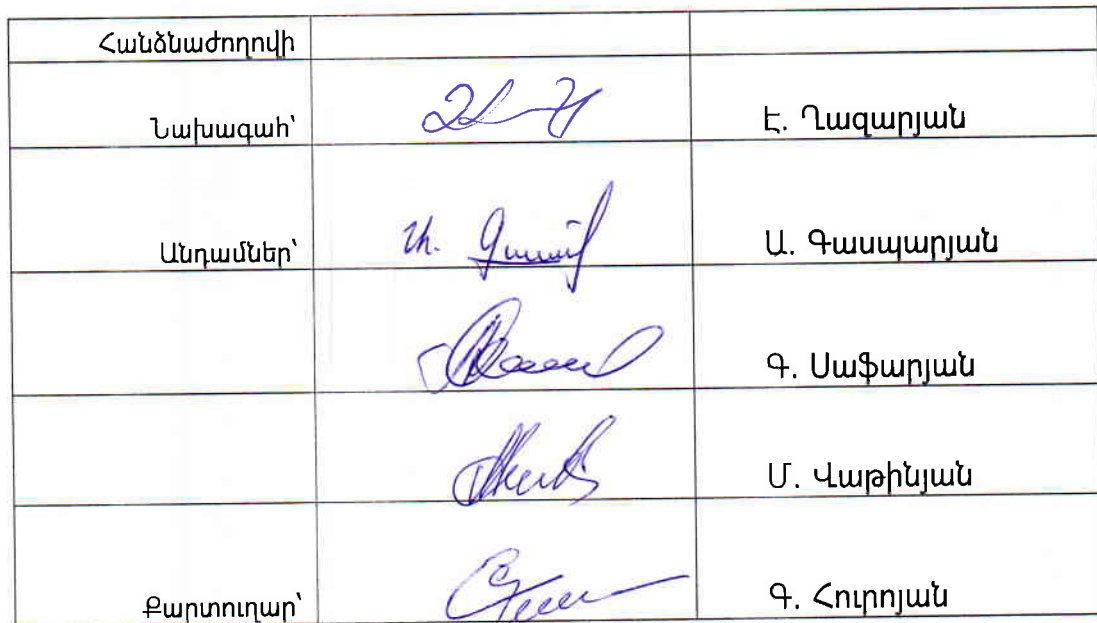 Հանձնաժողովի
Նախագահ՝ Է. Ղազարյան
Անդամներ՝ Ա. Գասպարյան
Գ. Սաֆարյան
Մ. Վաթինյան
Քարտուղար՝ Գ. Հուրոյան